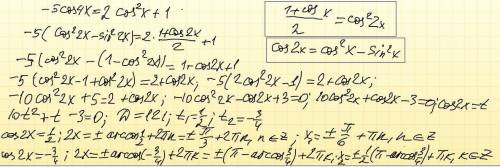 -5cos4x=2cos²x+1
1+cosx/2 = cos²2x
-5(cos²2x-sin²2x)=2·1+cos2x/2+1
cos2x=cos²x-sin²x
-5(cos²2x-(1-cos²2x)=1+cos2x+1
-5(cos²2x-1+cos²2x)=2+cos2x; -5(2cos²2x-1)=2+cos2x;
-10cos²2x+5=2+cos2x; -10cos²2x-cos2x+3=0; 10cos²2x+cos2x-3=0; cos2x=t
10t²+t-3=0; D=121; t₁=1/2; t₂=-3/4
cos2x=1/2; 2x=±arccos1/2+2πk=±π/3+2πk, k∈z; x=±π/6+πk, k∈z
cos2x=-3/4; 2x=±arccos(-3/4)+2πk=±(π-arccos3/4)+2πk; x=±1/2(π-arccos3/4)+πk, k∈z